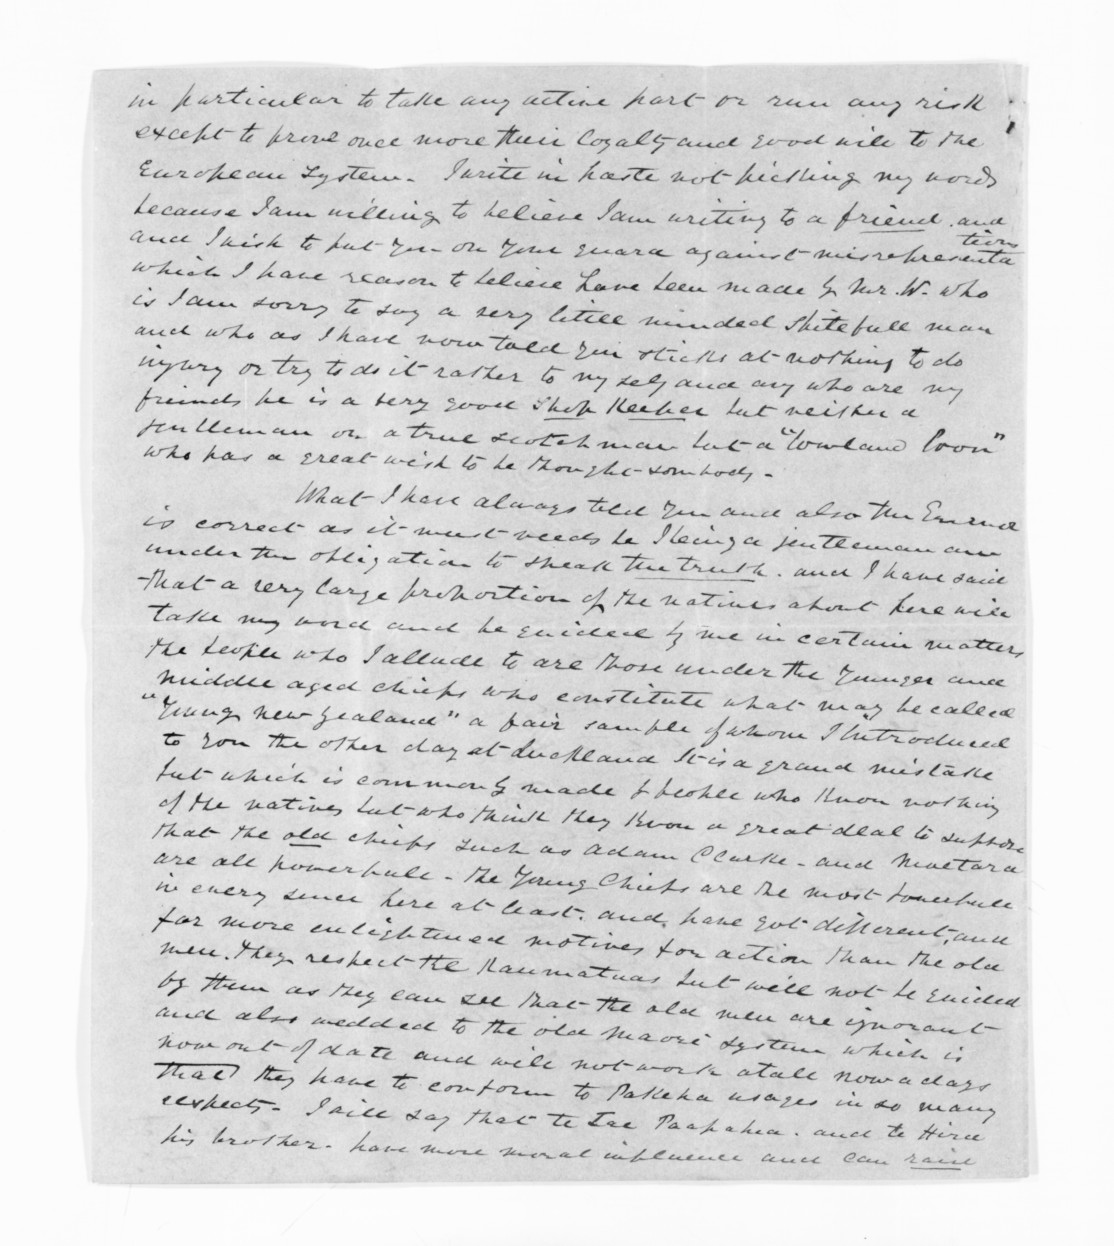 in particular to take any active part or run any risk
except to prove once more their loyalty and good will to the
European System - I write in haste not picking my words
because I am willing to believe I am writing to a friend. and
and I wish to put you on your guard against misrepresenta
tions
which I have reason to believe have been made by Mr. W. who
is I am sorry to say a very little minded spitefull man
and who as I have now told you sticks at nothing to do
injury or try to do it rather to my self and any who are my
freinds he is a very good Shop Keeper but neither a
gentleman or a true scotch man but a "Lowland Loon"
who has a great wish to be thought sombody -
What I have always told you and also the
is correct as it must needs be I being a gentleman am
under the obligation to speak the truth. and I have said
that a very large proportion of the natives about here will
take my word and be guided by me in certain matters
the people who I allude to are those under the younger and
middle aged chiefs who constitute what may be called
"Young new Zealand" a fair sample of whom I introduced
to you the other day at Auckland It is a grand mistake
but which is commonly made by people who know nothing
of the natives but who think they know a great deal to suppose
that the old chiefs such as Adam Clarke - and Moetara
are all powerfull - the Young Chiefs are the most powerfull
in every sence here at least. and have got different, and
far more enlightened motives for action than the old
men. they respect the Kaumatuas but will not be guided
by them as they can see that the old men are ignorant
and also wedded to the old Maori system which is
now out of date and will not work atall now a days
that they have to conform to Pakeha usages in so many
respects - I will say that te Tae Paapahia. and te Hira
his brother - have more moral influence and can raise